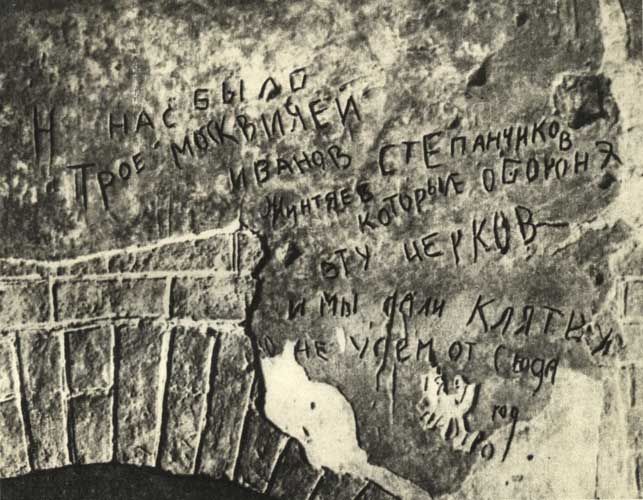 Н НАС БЫЛО
ТРОЕ МОСКВИЧЕЙ
ИВАНОВ СТЕПАНЧИКОВ
ЖИНТЯЕВ КОТОРЫЕ ОБОРОНЯ
ЭТУ ЦЕРКОВ
И МЫ ДАЛИ КЛЯТВУ
НЕ УЙДЕМ ОТ СЮДА
год